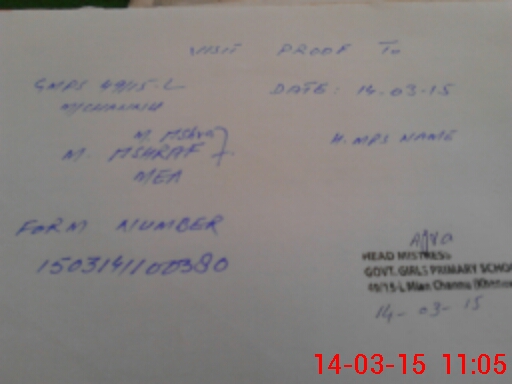 VISIT PROOF To
GMPS 49/15-L
DATE: 14-03-15
M. MShraf
H. MRS NAME
M. MSHRAF
MEA
FORM NUMBER
1503141100380
HEAD MISTRESS
GOVT. GIRLS PRIMARY SCHOO
49/15-L Mian Channu (Khanew
14-03-15
14-03-15 11:05